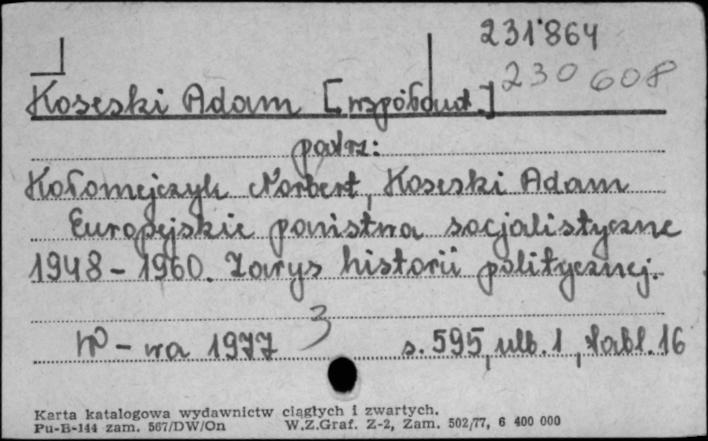 231864
230608
Koseski Adam [współaut.]
patrz:
Kołomejczyk Norbert, Koseski Adam
Europejskie państwa socjalistyczne
1948-1960. Zarys historii politycznej.
W-wa 1977 3 s. 595, ulb. 1, tabl. 16
Karta katalogowa wydawnictw ciągłych i zwartych.
Pu-B-144 zam. 567/DW/On W.Z.Graf. Z-2, Zam. 502/77, 6 400 000